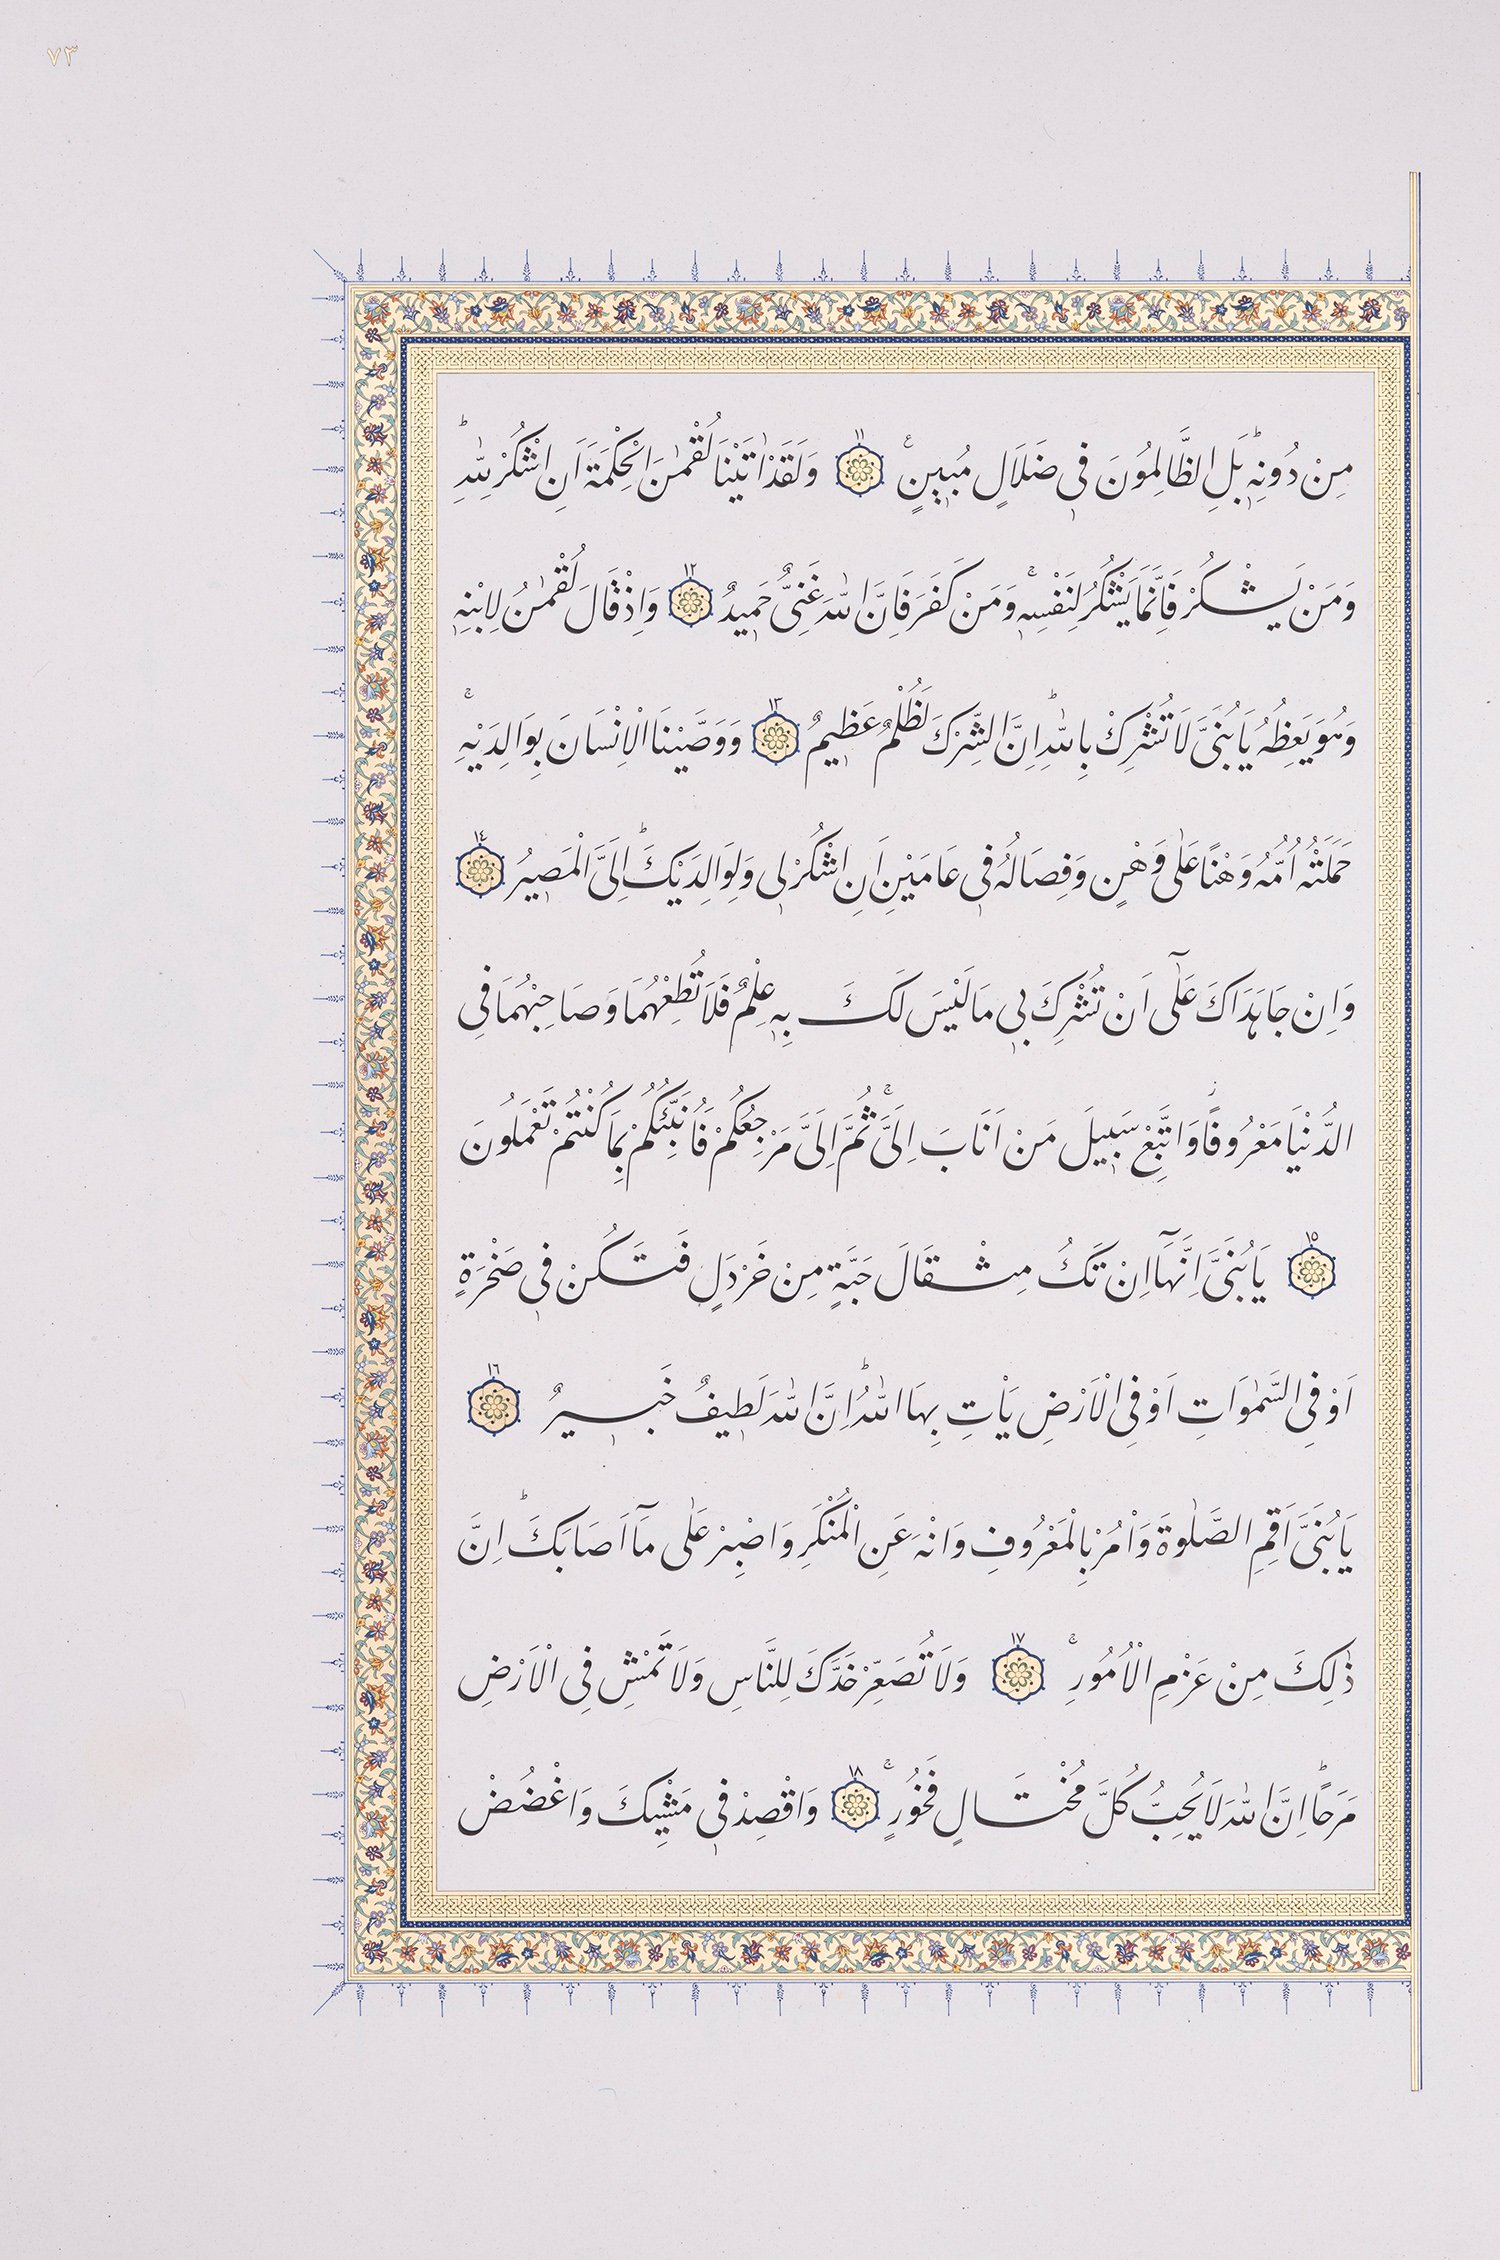 ٧٣
مِنْ دُونِهٖۜ بَلِ الظَّالِمُونَ فٖي ضَلَالٍ مُبٖينٍۚ ١١ وَلَقَدْ اٰتَيْنَا لُقْمٰنَ الْحِكْمَةَ اَنِ اشْكُرْ لِلّٰهِۜ
وَمَنْ يَشْكُرْ فَاِنَّمَا يَشْكُرُ لِنَفْسِهٖۚ وَمَنْ كَفَرَ فَاِنَّ اللّٰهَ غَنِيٌّ حَمٖيدٌ ١٢ وَاِذْ قَالَ لُقْمٰنُ لِابْنِهٖ
وَهُوَ يَعِظُهُ يَابُنَيَّ لَا تُشْرِكْ بِاللّٰهِۜ اِنَّ الشِّرْكَ لَظُلْمٌ عَظٖيمٌ ١٣ وَوَصَّيْنَا الْاِنْسَانَ بِوَالِدَيْهِۚ
حَمَلَتْهُ اُمُّهُ وَهْنًا عَلٰى وَهْنٍ وَفِصَالُهُ فٖي عَامَيْنِ اَنِ اشْكُرْ لٖي وَلِوَالِدَيْكَۜ اِلَيَّ الْمَصٖيرُ ١٤
وَاِنْ جَاهَدَاكَ عَلٰٓى اَنْ تُشْرِكَ بٖي مَا لَيْسَ لَكَ بِهٖ عِلْمٌ فَلَا تُطِعْهُمَا وَصَاحِبْهُمَا فِي
الدُّنْيَا مَعْرُوفًاؗ وَاتَّبِعْ سَبٖيلَ مَنْ اَنَابَ اِلَيَّۚ ثُمَّ اِلَيَّ مَرْجِعُكُمْ فَاُنَبِّئُكُمْ بِمَا كُنْتُمْ تَعْمَلُونَ
١٥ يَابُنَيَّ اِنَّهَٓا اِنْ تَكُ مِثْقَالَ حَبَّةٍ مِنْ خَرْدَلٍ فَتَكُنْ فٖي صَخْرَةٍ
اَوْ فِي السَّمٰوَاتِ اَوْ فِي الْاَرْضِ يَأْتِ بِهَا اللّٰهُۜ اِنَّ اللّٰهَ لَطٖيفٌ خَبٖيرٌ ١٦
يَابُنَيَّ اَقِمِ الصَّلٰوةَ وَأْمُرْ بِالْمَعْرُوفِ وَانْهَ عَنِ الْمُنْكَرِ وَاصْبِرْ عَلٰى مَٓا اَصَابَكَۜ اِنَّ
ذٰلِكَ مِنْ عَزْمِ الْاُمُورِۚ ١٧ وَلَا تُصَعِّرْ خَدَّكَ لِلنَّاسِ وَلَا تَمْشِ فِي الْاَرْضِ
مَرَحًاۜ اِنَّ اللّٰهَ لَا يُحِبُّ كُلَّ مُخْتَالٍ فَخُورٍۚ ١٨ وَاقْصِدْ فٖي مَشْيِكَ وَاغْضُضْ